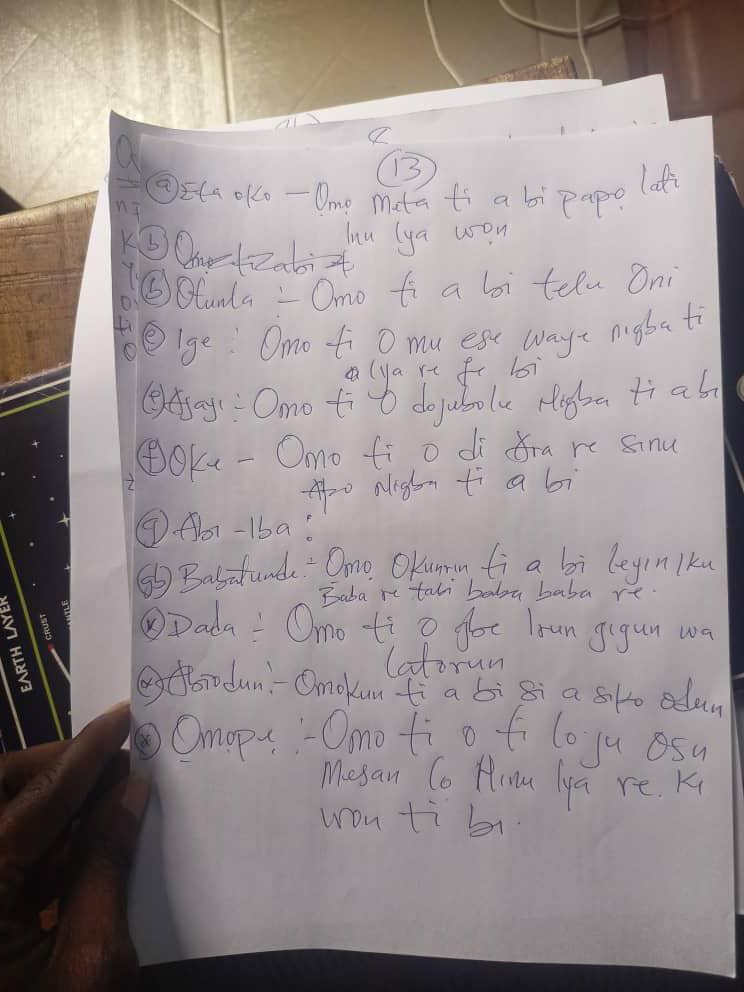 (13)
(a) Eta oko – Omo meta ti a bi papọ lati
Inu Iya won
(b)
(b) Otunla :- Omo ti a bi telu Oni
(e) Ige : Omo ti O mu ese waye nigba ti
Iya re fe bi
(e) Ajayi :- Omo ti O dojubolu Nigba ti a bi
(f) Oke – Omo ti o di Ara re sinu
Apo Nigba ti a bi
(g) Abi-Iba :
(gb) Babatunde :- Omo Okunrin ti a bi leyin Iku
Baba re tabi baba baba re.
Dada :- Omo ti O gbe Irun gigun wa
latorun
Abiodun :- Omokun ti a bi si asiko odun
Omope :- Omo ti o ti loju Osu
Mesan lo Ninu Iya re. Ki
won ti bi.
EARTH LAYER
CRUST